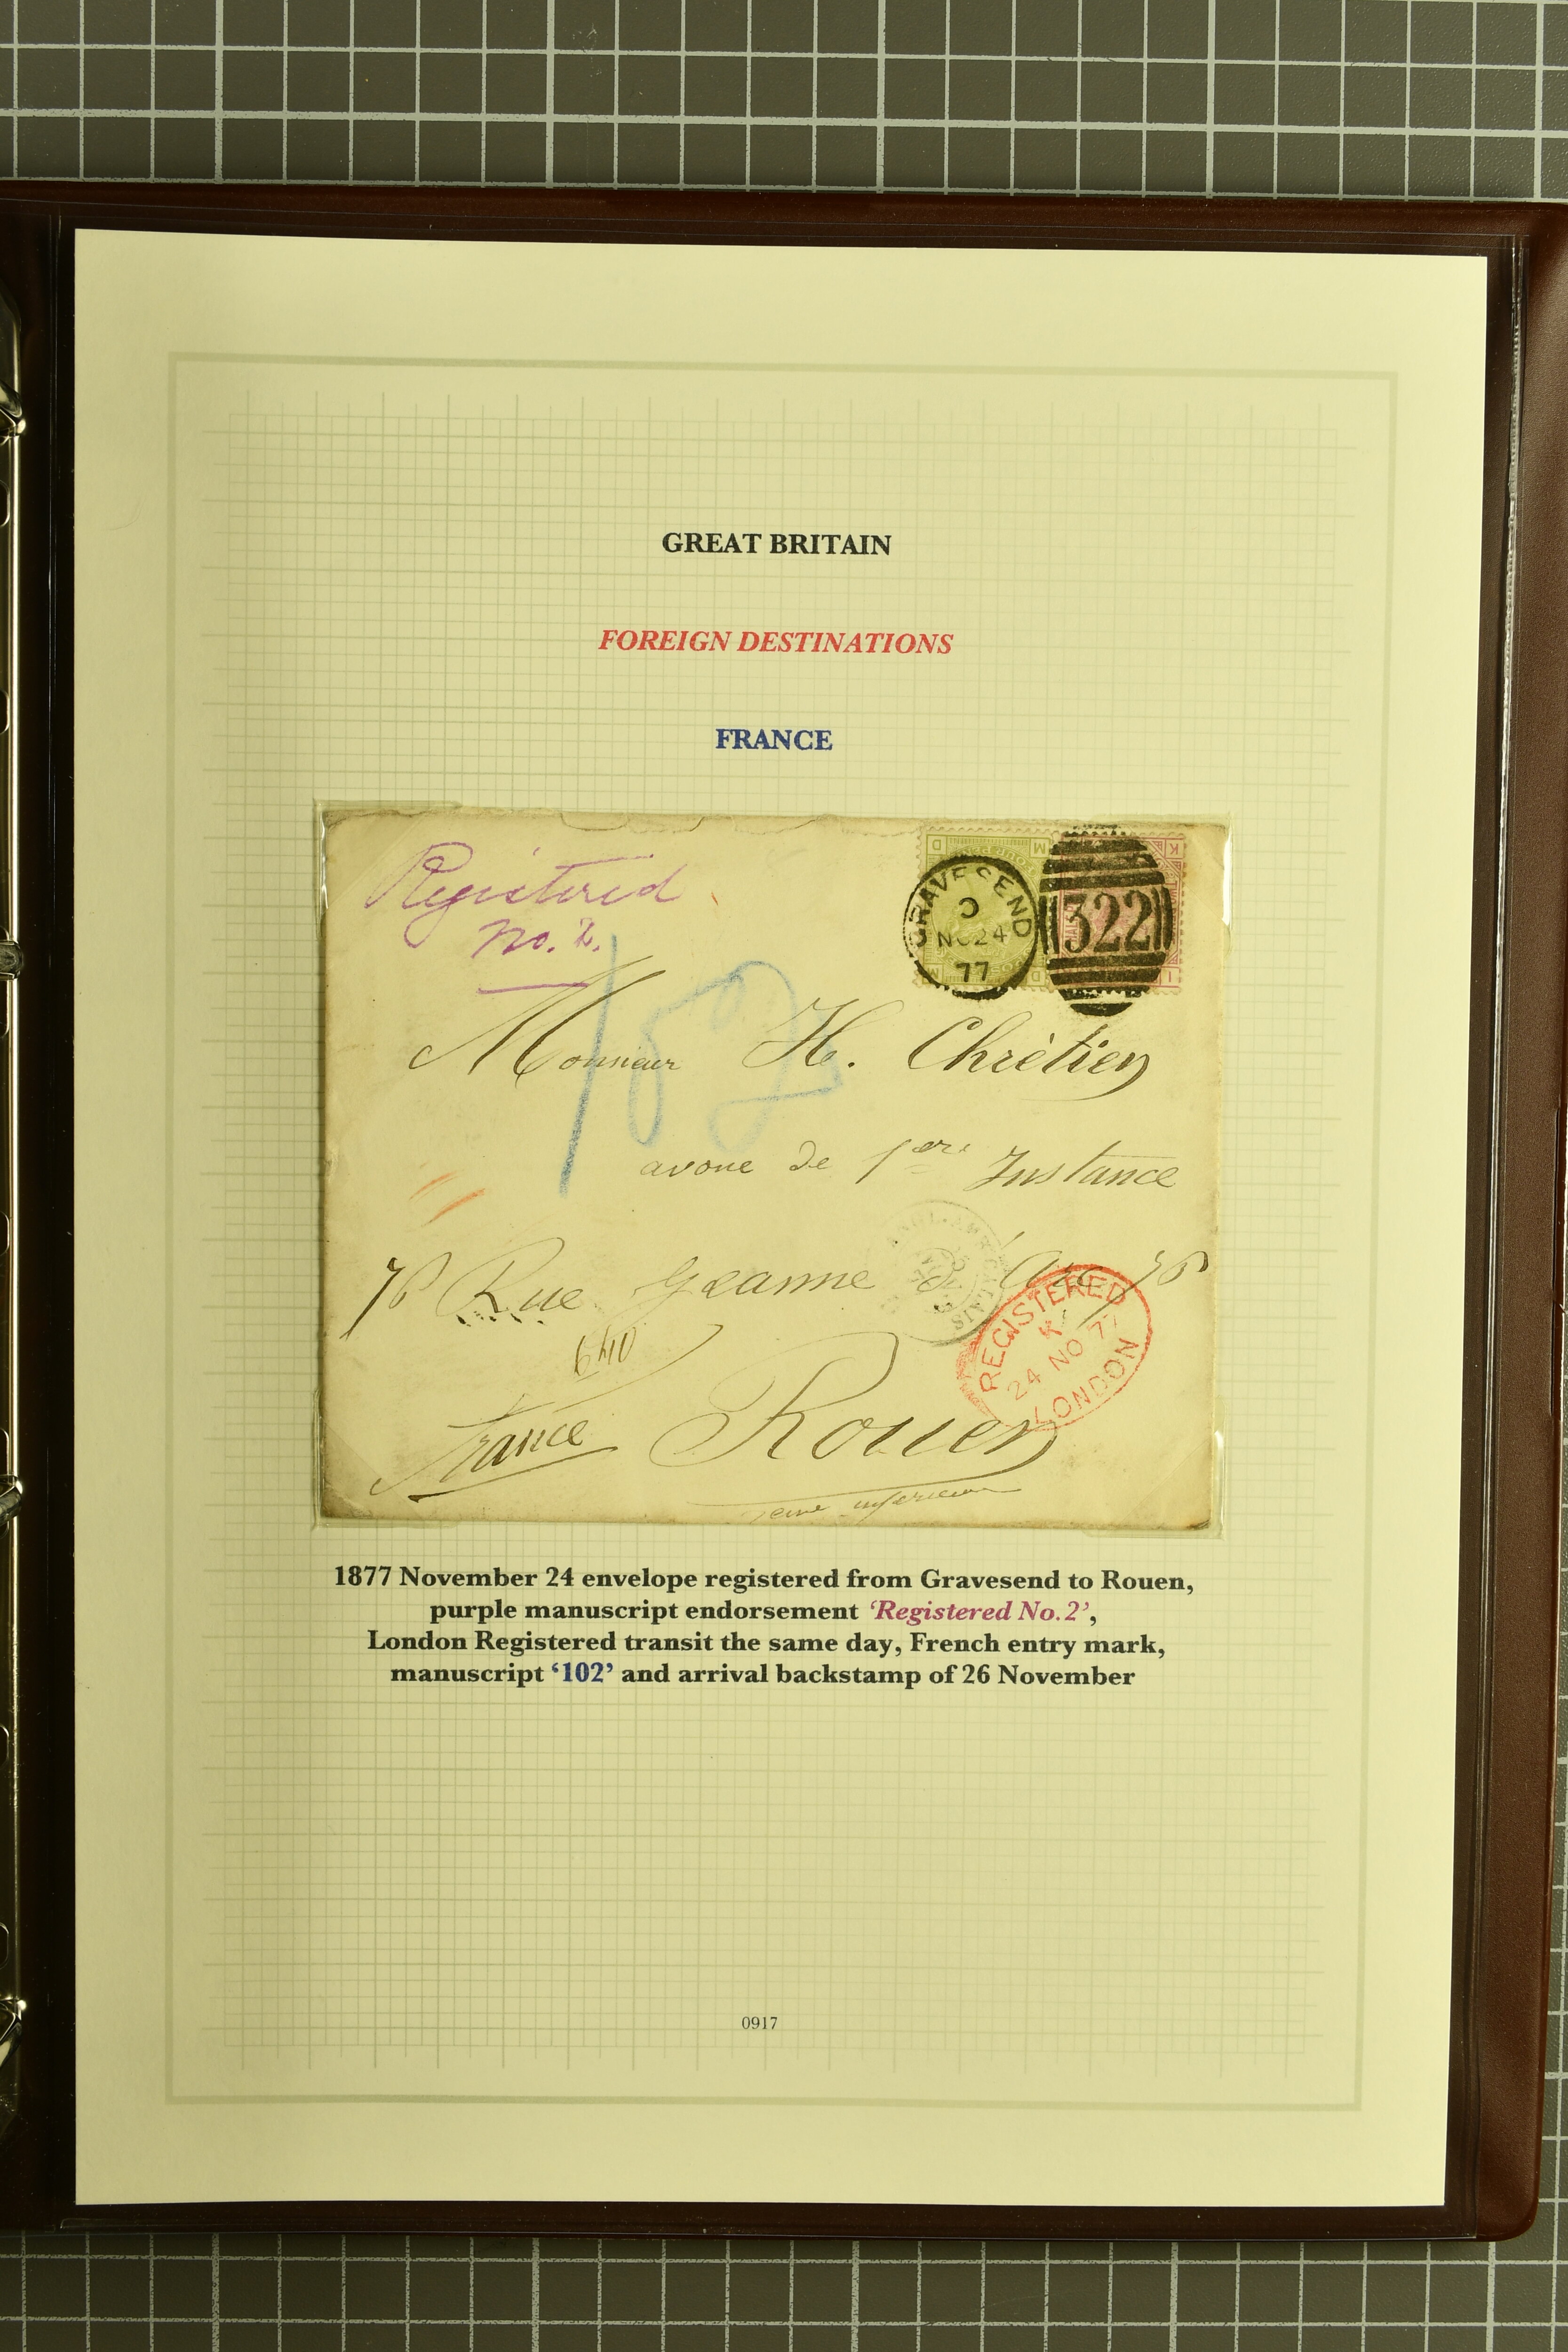 GREAT BRITAIN
FOREIGN DESTINATIONS
FRANCE
Registered
No. 2.
GRAVESEND
NO 24
77
322
102
Monsieur H. Chrétien
avoue de 1ere Instance
76 Rue Jeanne d'Arc 76
ANGL. AMB. CALAIS
640
REGISTERED
24 NO 77
LONDON
France Rouen
Seine inferieure
1877 November 24 envelope registered from Gravesend to Rouen,
purple manuscript endorsement ‘Registered No.2’,
London Registered transit the same day, French entry mark,
manuscript ‘102’ and arrival backstamp of 26 November
0917